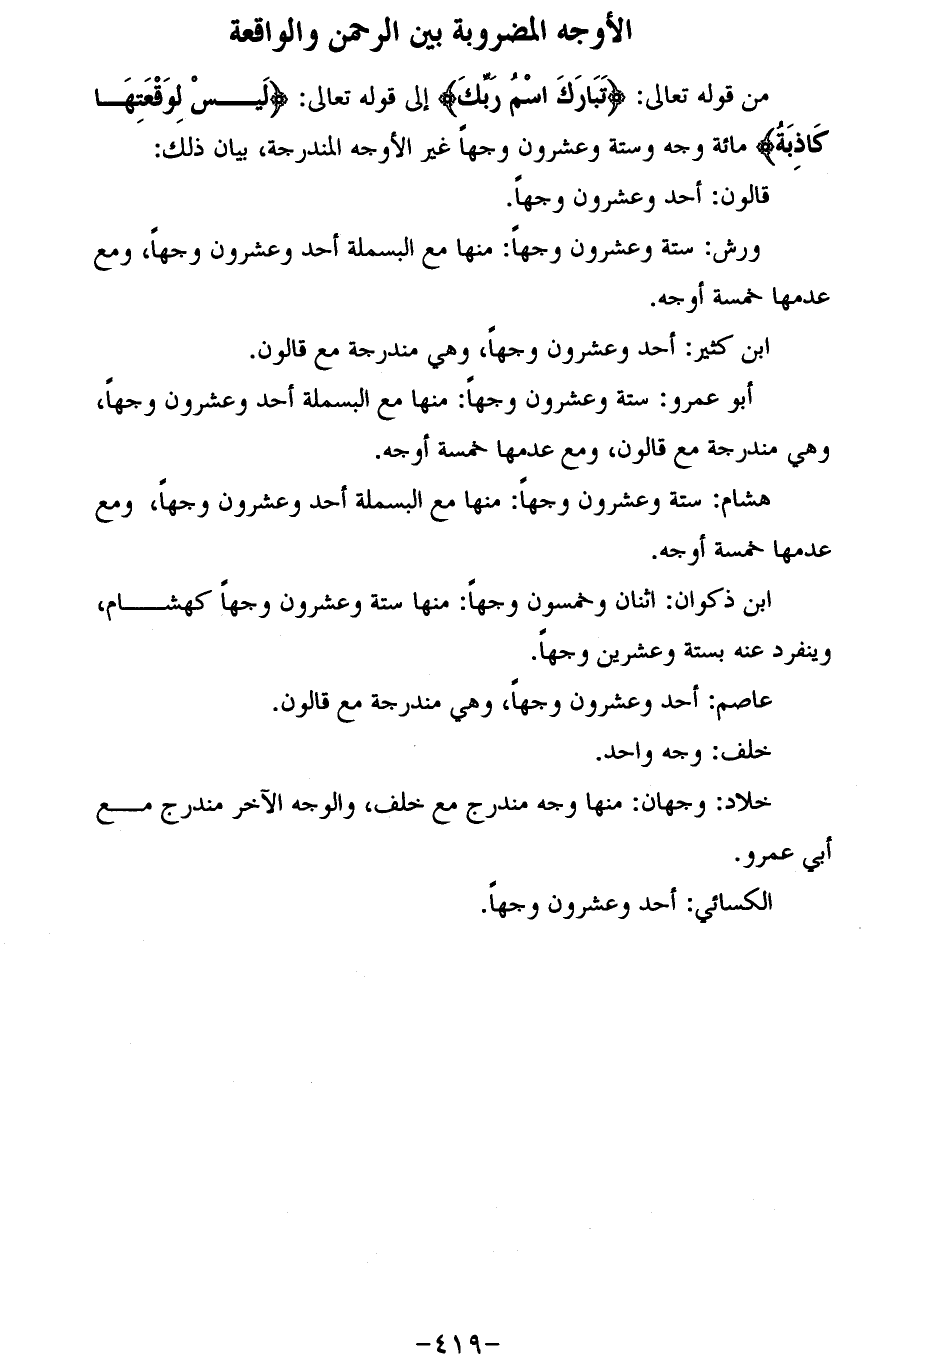 الأوجه المضروبة بين الرحمن والواقعة
من قوله تعالى: ﴿تَبَارَكَ اسْمُ رَبِّكَ﴾ إلى قوله تعالى: ﴿لَيسْ لِوَقْعَتِهَا
كَاذِبَةٌ﴾ مائة وجه وستة وعشرون وجهاً غير الأوجه المندرجة، بيان ذلك:
قالون: أحد وعشرون وجهاً.
ورش: ستة وعشرون وجهاً: منها مع البسملة أحد وعشرون وجهاً، ومع
عدمها خمسة أوجه.
ابن كثير: أحد وعشرون وجهاً، وهي مندرجة مع قالون.
أبو عمرو: ستة وعشرون وجهاً: منها مع البسملة أحد وعشرون وجهاً،
وهي مندرجة مع قالون، ومع عدمها خمسة أوجه.
هشام: ستة وعشرون وجهاً: منها مع البسملة أحد وعشرون وجهاً، ومع
عدمها خمسة أوجه.
ابن ذكوان: اثنان وخمسون وجهاً: منها ستة وعشرون وجهاً كهشام،
وينفرد عنه بستة وعشرين وجهاً.
عاصم: أحد وعشرون وجهاً، وهي مندرجة مع قالون.
خلف: وجه واحد.
خلاد: وجهان: منها وجه مندرج مع خلف، والوجه الآخر مندرج مع
أبي عمرو.
الكسائي: أحد وعشرون وجهاً.
-٤١٩-